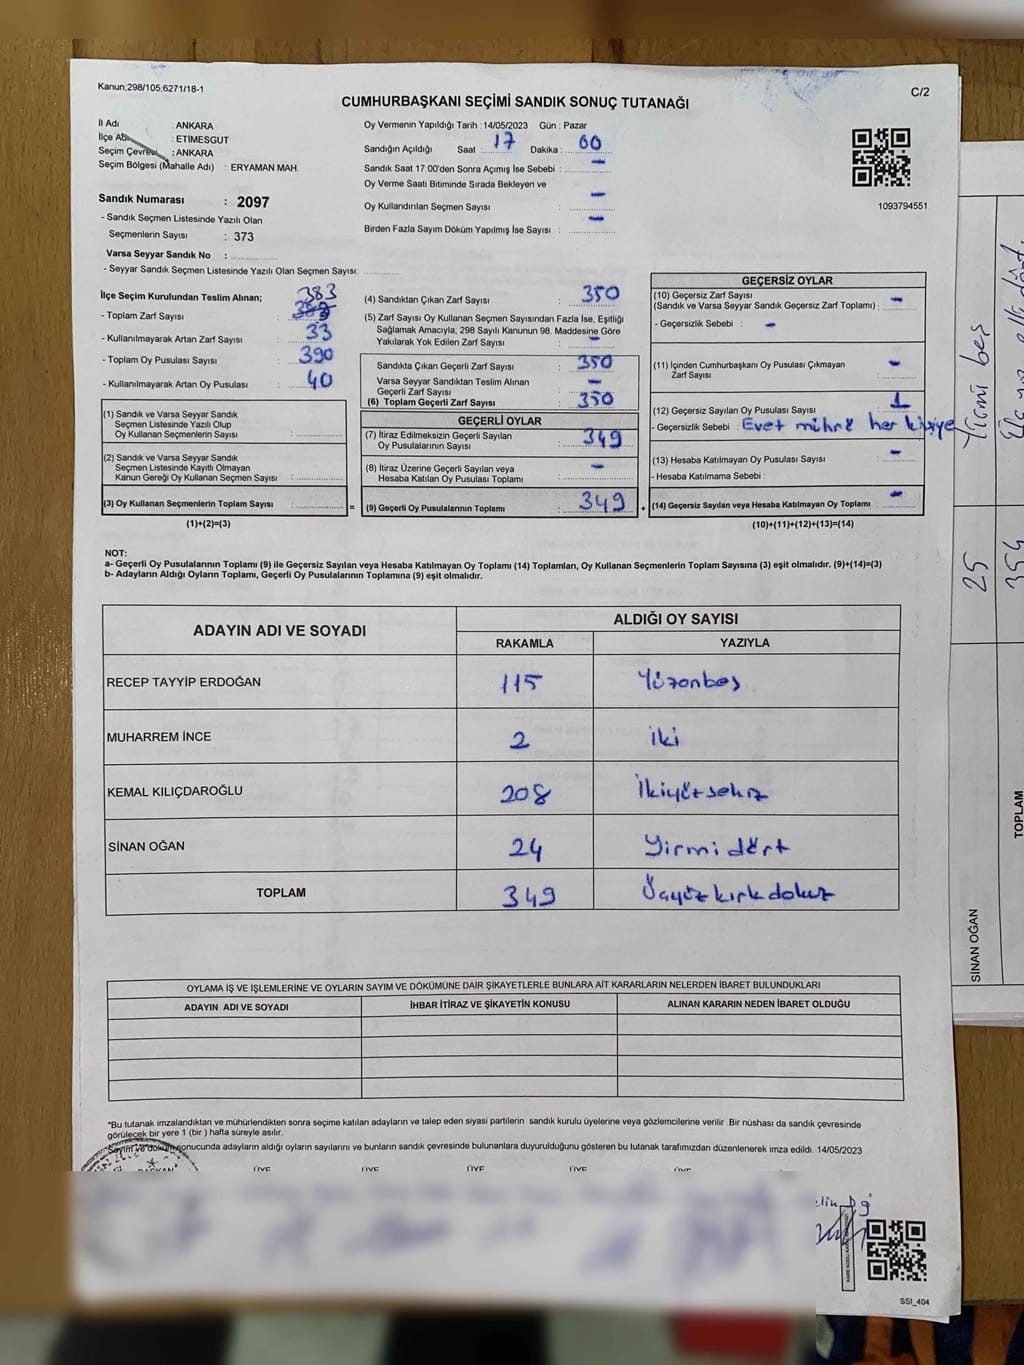 Kanun;298/105,6271/18-1
C/2
CUMHURBAŞKANI SEÇİMİ SANDIK SONUÇ TUTANAĞI
İl Adı : ANKARA
İlçe Adı : ETIMESGUT
Seçim Çevresi : ANKARA
Seçim Bölgesi (Mahalle Adı) : ERYAMAN MAH.
Sandık Numarası : 2097
- Sandık Seçmen Listesinde Yazılı Olan
Seçmenlerin Sayısı : 373
Varsa Seyyar Sandık No :
- Seyyar Sandık Seçmen Listesinde Yazılı Olan Seçmen Sayısı:
Oy Vermenin Yapıldığı Tarih :14/05/2023 Gün : Pazar
Sandığın Açıldığı Saat : 17 Dakika : 00
Sandık Saat 17.00'den Sonra Açımış İse Sebebi : -
Oy Verme Saati Bitiminde Sırada Bekleyen ve
Oy Kullandırılan Seçmen Sayısı -
Birden Fazla Sayım Döküm Yapılmış İse Sayısı : -
1093794551
İlçe Seçim Kurulundan Teslim Alınan;
- Toplam Zarf Sayısı : 383
- Kullanılmayarak Artan Zarf Sayısı : 33
- Toplam Oy Pusulası Sayısı : 390
- Kullanılmayarak Artan Oy Pusulası : 40
(1) Sandık ve Varsa Seyyar Sandık
Seçmen Listesinde Yazılı Olup
Oy Kullanan Seçmenlerin Sayısı :
(2) Sandık ve Varsa Seyyar Sandık
Seçmen Listesinde Kayıtlı Olmayan
Kanun Gereği Oy Kullanan Seçmen Sayısı :
(3) Oy Kullanan Seçmenlerin Toplam Sayısı : =
(1)+(2)=(3)
(4) Sandıktan Çıkan Zarf Sayısı : 350
(5) Zarf Sayısı Oy Kullanan Seçmen Sayısından Fazla İse, Eşitliği
Sağlamak Amacıyla; 298 Sayılı Kanunun 98. Maddesine Göre
Yakılarak Yok Edilen Zarf Sayısı : -
Sandıkta Çıkan Geçerli Zarf Sayısı : 350
Varsa Seyyar Sandıktan Teslim Alınan
Geçerli Zarf Sayısı : -
(6) Toplam Geçerli Zarf Sayısı : 350
GEÇERLİ OYLAR
(7) İtiraz Edilmeksizin Geçerli Sayılan
Oy Pusulalarının Sayısı : 349
(8) İtiraz Üzerine Geçerli Sayılan veya
Hesaba Katılan Oy Pusulası Toplamı : -
(9) Geçerli Oy Pusulalarının Toplamı : 349 +
GEÇERSİZ OYLAR
(10) Geçersiz Zarf Sayısı
(Sandık ve Varsa Seyyar Sandık Geçersiz Zarf Toplamı) : -
- Geçersizlik Sebebi : -
(11) İçinden Cumhurbaşkanı Oy Pusulası Çıkmayan
Zarf Sayısı : -
(12) Geçersiz Sayılan Oy Pusulası Sayısı : 1
- Geçersizlik Sebebi : Evet mührü her kişiye
(13) Hesaba Katılmayan Oy Pusulası Sayısı : -
- Hesaba Katılmama Sebebi :
(14) Geçersiz Sayılan veya Hesaba Katılmayan Oy Toplamı : -
(10)+(11)+(12)+(13)=(14)
NOT:
a- Geçerli Oy Pusulalarının Toplamı (9) ile Geçersiz Sayılan veya Hesaba Katılmayan Oy Toplamı (14) Toplamları, Oy Kullanan Seçmenlerin Toplam Sayısına (3) eşit olmalıdır. (9)+(14)=(3)
b- Adayların Aldığı Oyların Toplamı, Geçerli Oy Pusulalarının Toplamına (9) eşit olmalıdır.
ADAYIN ADI VE SOYADI ALDIĞI OY SAYISI
RAKAMLA YAZIYLA
RECEP TAYYİP ERDOĞAN 115 Yüzonbeş
MUHARREM İNCE 2 iki
KEMAL KILIÇDAROĞLU 208 İkiyüzsekiz
SİNAN OĞAN 24 Yirmidört
TOPLAM 349 Üçyüzkırkdokuz
OYLAMA İŞ VE İŞLEMLERİNE VE OYLARIN SAYIM VE DÖKÜMÜNE DAİR ŞİKAYETLERLE BUNLARA AİT KARARLARIN NELERDEN İBARET BULUNDUKLARI
ADAYIN ADI VE SOYADI İHBAR İTİRAZ VE ŞİKAYETİN KONUSU ALINAN KARARIN NEDEN İBARET OLDUĞU
*Bu tutanak imzalandıktan ve mühürlendikten sonra seçime katılan adayların ve talep eden siyasi partilerin sandık kurulu üyelerine veya gözlemcilerine verilir .Bir nüshası da sandık çevresinde
görülecek bir yere 1 (bir ) hafta süreyle asılır.
Sayım ve döküm sonucunda adayların aldığı oyların sayılarını ve bunların sandık çevresinde bulunanlara duyurulduğunu gösteren bu tutanak tarafımızdan düzenlenerek imza edildi. 14/05/2023
BAŞKAN ÜYE ÜYE ÜYE ÜYE ÜYE
SSI_404
SİNAN OĞAN 25 Yirmi beş
TOPLAM 354